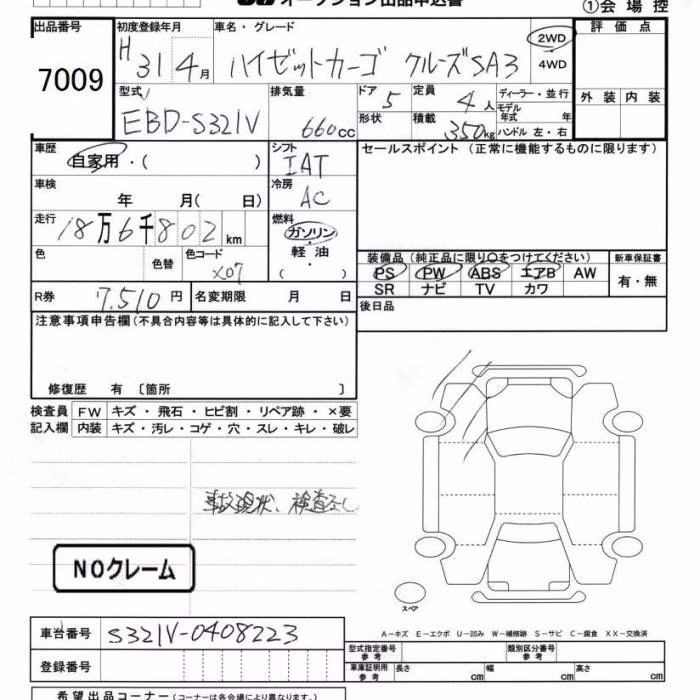 オークション出品申込書
①会場控
出品番号 初度登録年月 車名・グレード 評価点
7009 H 31 4月 ハイゼットカーゴ クルーズSA3 2WD 4WD
型式 排気量 ドア 定員 ディーラー・並行 外装 内装
EBD-S321V 660cc 5 4人 モデル年式 年
形状 積載 350kg ハンドル 左・右
車歴 シフト セールスポイント (正常に機能するものに限ります)
自家用・( ) IAT
車検 冷房
年 月( 日) AC
走行 燃料
18万6千802km ガソリン・軽油・( )
色 色替 色コード X07
装備品 (純正品に限り○をつけてください) 新車保証書
PS PW ABS エアB AW 有・無
SR ナビ TV カワ
R券 7,510円 名変期限 月 日 後日品
注意事項申告欄 (不具合内容等は具体的に記入して下さい)
修復歴 有 〔箇所 〕
検査員 FW キズ・飛石・ヒビ割・リペア跡・×要
記入欄 内装 キズ・汚レ・コゲ・穴・スレ・キレ・破レ
事故現状、検査なし
NOクレーム
スペア
A-キズ E-エクボ U-凹み W-補修跡 S-サビ C-腐食 XX-交換済
車台番号 S321V-0408223
型式指定番号 参考 類別区分番号 参考
登録番号
車庫証明用 参考 長さ cm 幅 cm 高さ cm
希望出品コーナー (コーナーは各会場により異なります。)